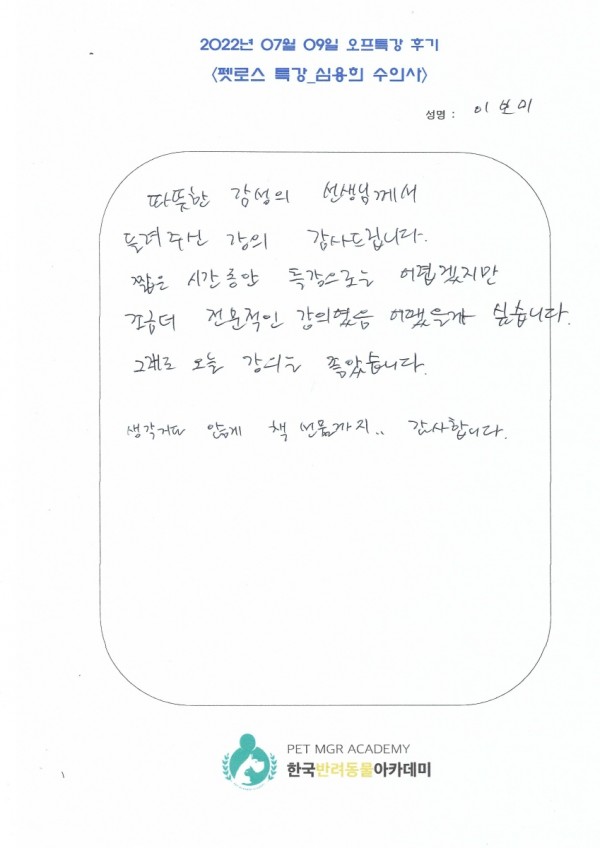 2022년 07월 09일 오프특강 후기
<펫로스 특강_심용희 수의사>
성명 : 이보미
따뜻한 감성의 선생님께서
들려주신 강의 감사드립니다.
짧은 시간동안 특강으로는 어렵겠지만
조금더 전문적인 강의였음 어땠을까 싶습니다.
그래도 오늘 강의는 좋았습니다.
생각지도 않게 책 선물까지.. 감사합니다.
PET MGR ACADEMY
한국반려동물아카데미